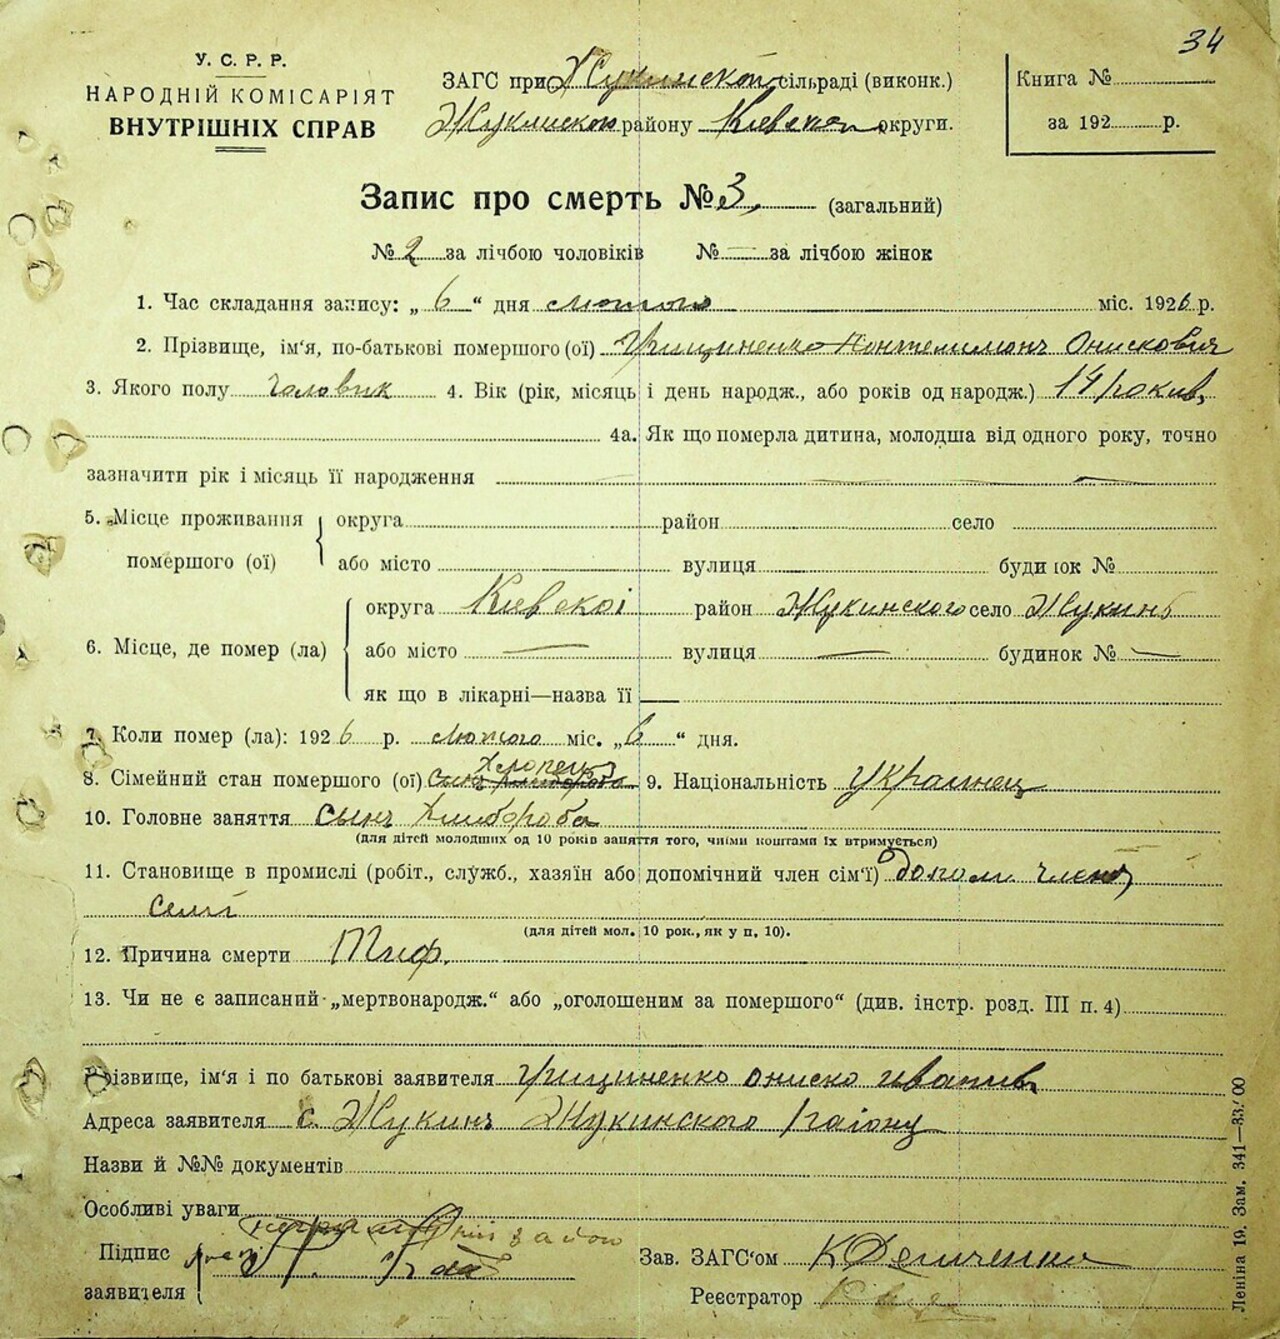 34
У. С. Р. Р.
НАРОДНІЙ КОМІСАРІЯТ
ВНУТРІШНІХ СПРАВ
ЗАГС при Жукинской сільраді (виконк.)
Жукинского району Киевской округи.
Книга №
за 192 р.
Запис про смерть № 3 (загальний)
№ 2 за лічбою чоловіків № — за лічбою жінок
1. Час складання запису: „ 6 “ дня лютого міс. 1926 р.
2. Прізвище, ім‘я, по-батькові помершого (ої) Грищиненко Понтелимонъ Онискович
3. Якого полу чоловик 4. Вік (рік, місяць і день народж., або років од народж.) 14 рокив,
4а. Як що померла дитина, молодша від одного року, точно
зазначити рік і місяць її народження —
5. Місце проживання помершого (ої) округа район село
або місто вулиця будинок №
6. Місце, де помер (ла) округа Киевскоі район Жукинского село Жукинъ
або місто — вулиця — будинок № —
як що в лікарні—назва її —
7. Коли помер (ла): 1926 р. лютого міс. „ 6 “ дня.
8. Сімейний стан помершого (ої) Сынъ хлибороба Хлопець 9. Національність украинец
10. Головне заняття сынъ Хлибороба
(для дітей молодших од 10 років заняття того, чиїми коштами їх втримується)
11. Становище в промислі (робіт., служб., хазяїн або допомічний член сім‘ї) допом. членъ
семі
(для дітей мол. 10 рок., як у п. 10).
12. Причина смерти Тиф.
13. Чи не є записаний „мертвонародж.“ або „оголошеним за помершого“ (див. інстр. розд. III п. 4)
Прізвище, ім‘я і по батькові заявителя Грищиненко Ониско Иванив
Адреса заявителя с. Жукинъ Жукинского Району
Назви й №№ документів
Особливі уваги
Підпис
заявителя
Зав. ЗАГС‘ом К Демченко
Реєстратор
Леніна 19. Зам. 341—33.